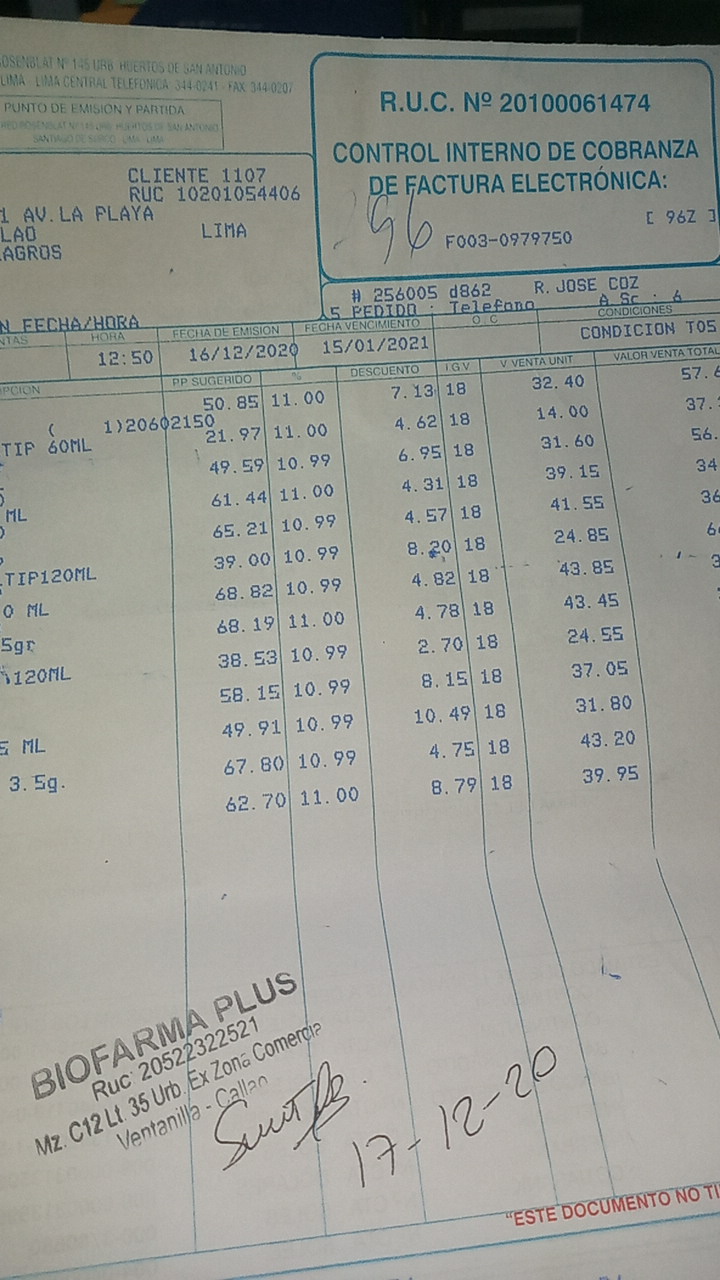 ROSENBLAT Nº 145 URB. HUERTOS DE SAN ANTONIO
LIMA - LIMA CENTRAL TELEFONICA: 344-0241 - FAX: 344-0207
PUNTO DE EMISION Y PARTIDA
ROSENBLAT Nº 145 URB. HUERTOS DE SAN ANTONIO
SANTIAGO DE SURCO - LIMA - LIMA
R.U.C. Nº 20100061474
CONTROL INTERNO DE COBRANZA
DE FACTURA ELECTRÓNICA:
96
F003-0979750
[ 96Z ]
CLIENTE 1107
RUC 10201054406
1 AV.LA PLAYA
LAO LIMA
AGROS
# 256005 d862 R. JOSE COZ
PEDIDO : Telefono A Sc : 6
N FECHA/HORA
NTAS HORA FECHA DE EMISION FECHA VENCIMIENTO O / C CONDICIONES
12:50 16/12/2020 15/01/2021 CONDICION T05
PCION PP SUGERIDO % DESCUENTO I.G.V V. VENTA UNIT VALOR VENTA TOTAL
50.85 11.00 7.13 18 32.40 57.6
( 1)20602150
TIP 60ML 21.97 11.00 4.62 18 14.00 37.
49.59 10.99 6.95 18 31.60 56.
61.44 11.00 4.31 18 39.15 34
ML 65.21 10.99 4.57 18 41.55 36
39.00 10.99 8.20 18 24.85 6
TIP120ML 68.82 10.99 4.82 18 43.85 3
0 ML 68.19 11.00 4.78 18 43.45
5gr 38.53 10.99 2.70 18 24.55
120ML 58.15 10.99 8.15 18 37.05
49.91 10.99 10.49 18 31.80
5 ML 67.80 10.99 4.75 18 43.20
3.5g. 62.70 11.00 8.79 18 39.95
BIOFARMA PLUS
Ruc: 20522322521
Mz. C12 Lt. 35 Urb. Ex Zona Comercia
Ventanilla - Callao
17-12-20
"ESTE DOCUMENTO NO TI